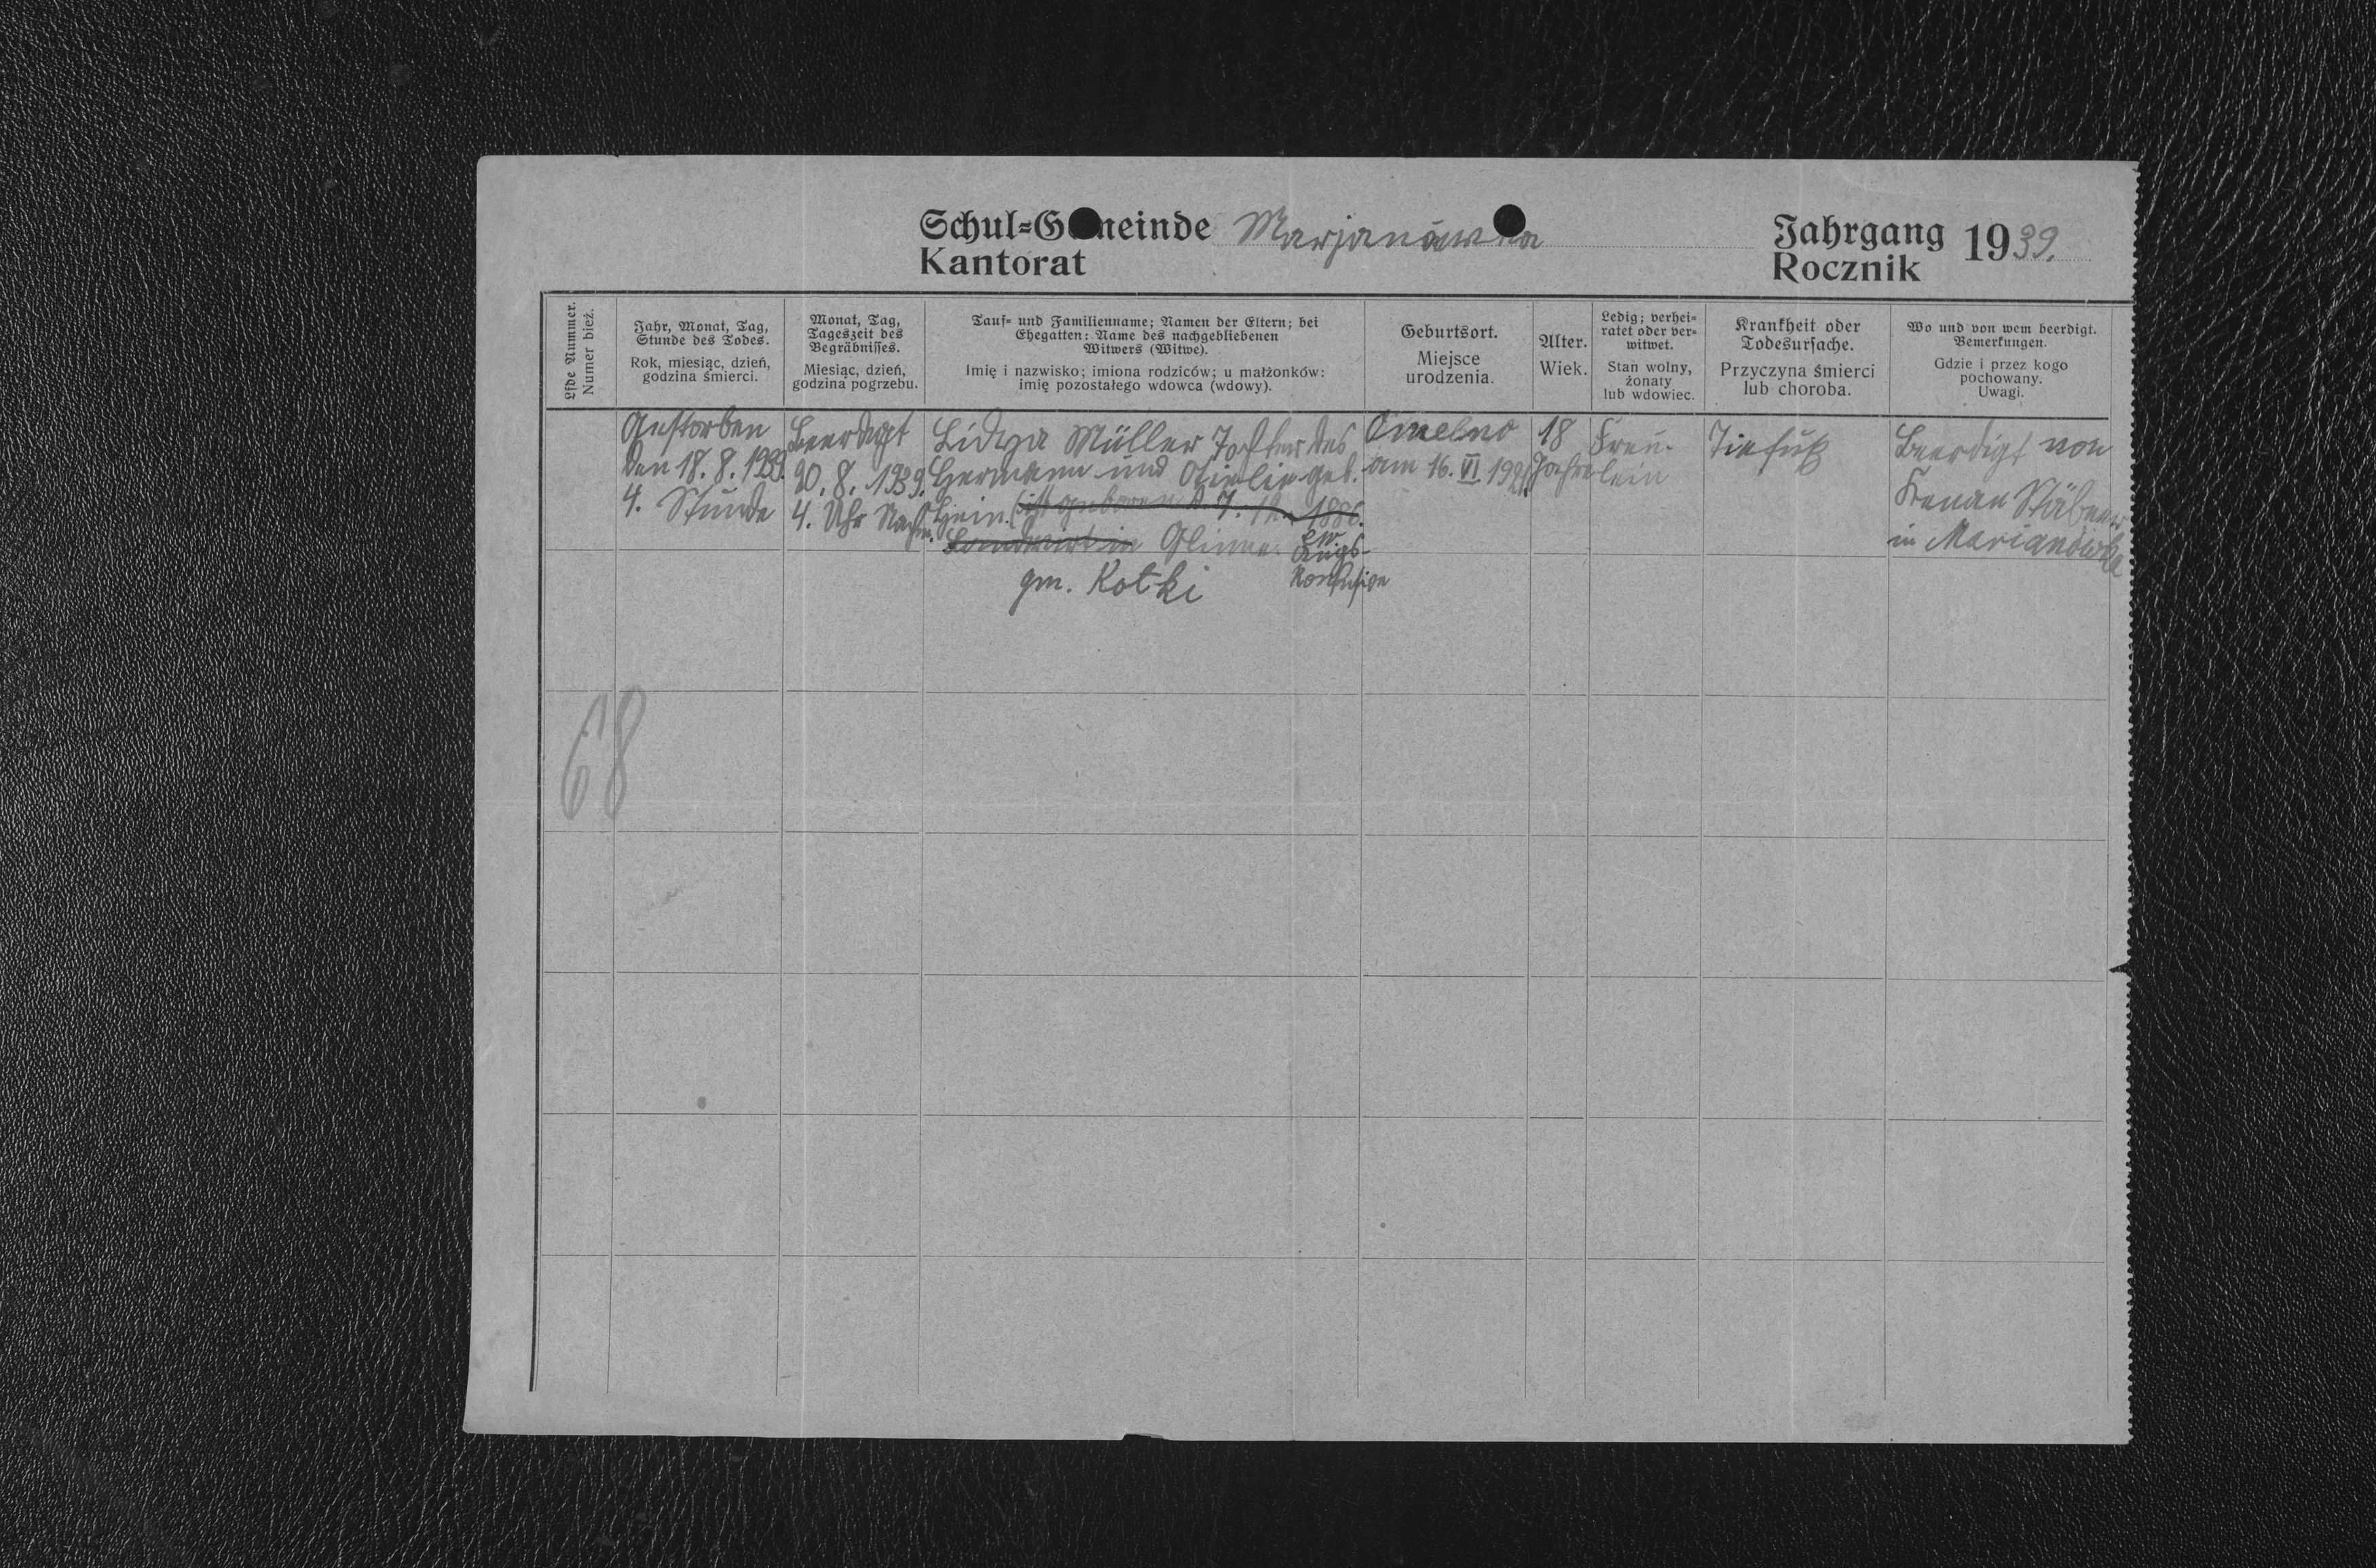 Schul=Gemeinde Marjanówka
Kantorat
Jahrgang 1939.
Rocznik
Lfde Nummer.
Numer bież.
Jahr, Monat, Tag,
Stunde des Todes.
Rok, miesiąc, dzień,
godzina śmierci.
Monat, Tag,
Tageszeit des
Begräbnisses.
Miesiąc, dzień,
godzina pogrzebu.
Tauf= und Familienname; Namen der Eltern; bei
Ehegatten: Name des nachgebliebenen
Witwers (Witwe).
Imię i nazwisko; imiona rodziców; u małżonków:
imię pozostałego wdowca (wdowy).
Geburtsort.
Miejsce
urodzenia.
Alter.
Wiek.
Ledig; verhei=
ratet oder ver=
witwet.
Stan wolny,
żonaty
lub wdowiec.
Krankheit oder
Todesursache.
Przyczyna śmierci
lub choroba.
Wo und von wem beerdigt.
Bemerkungen.
Gdzie i przez kogo
pochowany.
Uwagi.
Gestorben
den 18. 8. 1939.
4. Stunde
Beerdigt
20. 8. 1939.
4. Uhr Nachm.
Lidya Müller Tochter des
Hermann und Otielie geb.
Hein. (ist geboren d. 7. 1886.
in
gm. Kotki
Omelno
am 16. VI. 1921.
18
Jahre
Freu-
lein
Tiefuß
Beerdigt von
in Marianówka
68